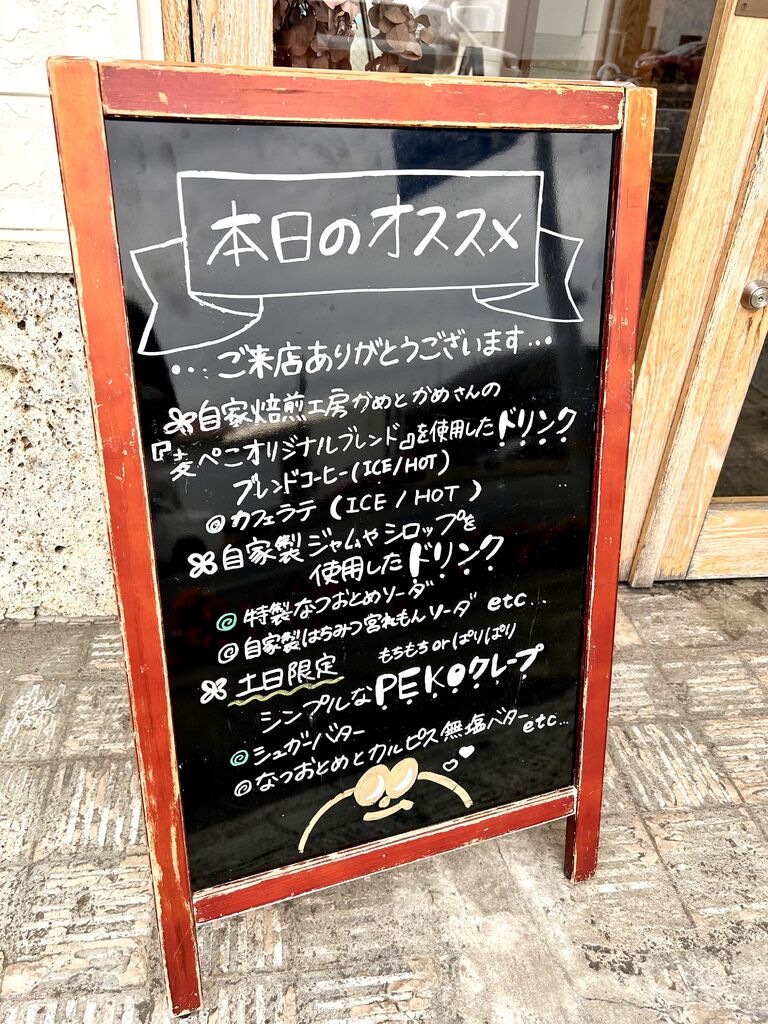 本日のオススメ
・・・ご来店ありがとうございます・・・
自家焙煎工房かめとかめさんの
『麦ぺこオリジナルブレンド』を使用したドリンク
ブレンドコーヒー(ICE/HOT)
◎カフェラテ (ICE / HOT)
自家製ジャムやシロップを
使用したドリンク
◎特製なつおとめソーダ
◎自家製はちみつ宮れもんソーダ etc...
土日限定 もちもち or ぱりぱり
シンプルなPEKOクレープ
◎シュガーバター
◎なつおとめとカルピス無塩バター etc...